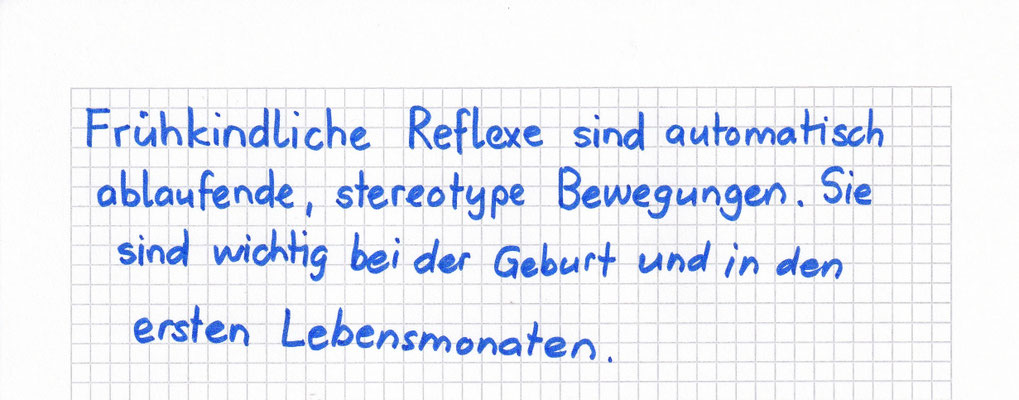 Frühkindliche Reflexe sind automatisch
ablaufende, stereotype Bewegungen. Sie
sind wichtig bei der Geburt und in den
ersten Lebensmonaten.